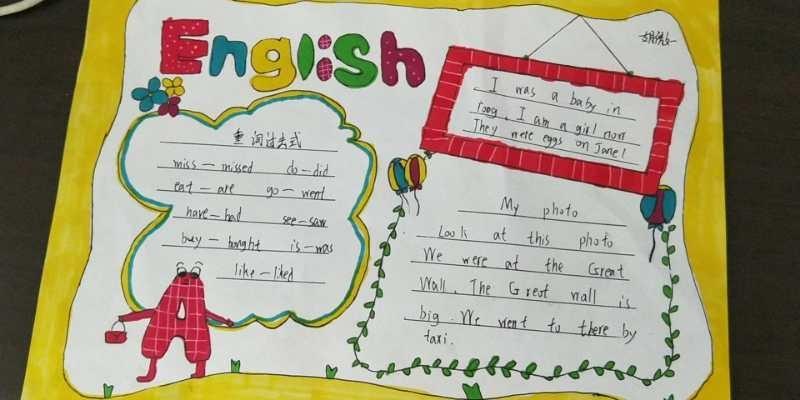 English
词过去式
miss — missed do — did
eat — ate go — went
have — had see — saw
buy — bought is — was
like — liked
I was a baby in
I am a girl now
They were eggs on June 1
My photo
Look at this photo
We were at the Great
Wall. The Great wall is
big. We went to there by
taxi.